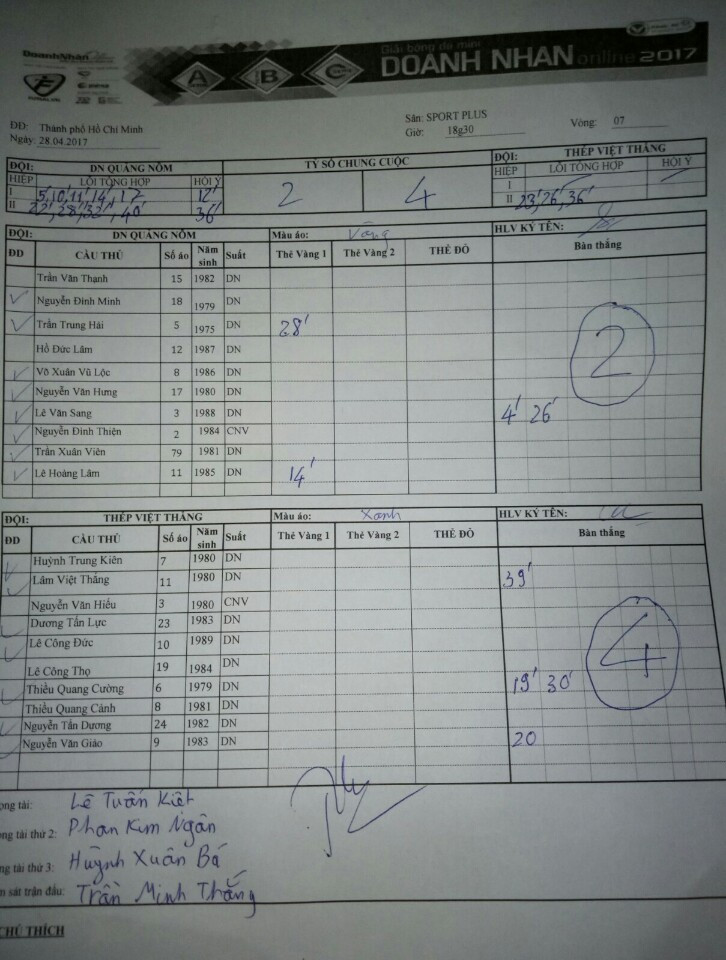 DoanhNhan
Giải bóng đá mini
DOANH NHAN online 2017
A B C
ĐĐ: Thành phố Hồ Chí Minh Sân: SPORT PLUS Vòng: 07
Ngày: 28.04.2017 Giờ: 18g30
ĐỘI: DN QUẢNG NÔM TỶ SỐ CHUNG CUỘC ĐỘI: THÉP VIỆT THẮNG
HIỆP LỖI TỔNG HỢP HỘI Ý 2 4 HIỆP LỖI TỔNG HỢP HỘI Ý
I 5',10',11',14',17 12' I
II 22',28',32',40' 36' II 23',26',36'
ĐỘI: DN QUẢNG NÔM Màu áo: Vàng HLV KÝ TÊN:
ĐD CẦU THỦ Số áo Năm sinh Suất Thẻ Vàng 1 Thẻ Vàng 2 THẺ ĐỎ Bàn thắng
Trần Văn Thạnh 15 1982 DN
Nguyễn Đình Minh 18 1979 DN
Trần Trung Hải 5 1975 DN 28'
Hồ Đức Lâm 12 1987 DN
2
Võ Xuân Vũ Lộc 8 1986 DN
Nguyễn Văn Hưng 17 1980 DN
Lê Văn Sang 3 1988 DN 4' 26'
Nguyễn Đình Thiện 2 1984 CNV
Trần Xuân Viên 79 1981 DN
Lê Hoàng Lâm 11 1985 DN 14'
ĐỘI: THÉP VIỆT THẮNG Màu áo: Xanh HLV KÝ TÊN:
ĐD CẦU THỦ Số áo Năm sinh Suất Thẻ Vàng 1 Thẻ Vàng 2 THẺ ĐỎ Bàn thắng
Huỳnh Trung Kiên 7 1980 DN
Lâm Việt Thắng 11 1980 DN 39'
Nguyễn Văn Hiếu 3 1980 CNV
Dương Tấn Lực 23 1983 DN
Lê Công Đức 10 1989 DN
4
Lê Công Thọ 19 1984 DN
Thiều Quang Cường 6 1979 DN 19' 30'
Thiều Quang Cảnh 8 1981 DN
Nguyễn Tấn Dương 24 1982 DN
Nguyễn Văn Giáo 9 1983 DN 20
ọng tài: Lê Tuấn Kiệt
ọng tài thứ 2: Phan Kim Ngân
ng tài thứ 3: Huỳnh Xuân Bá
m sát trận đấu: Trần Minh Thắng
CHÚ THÍCH